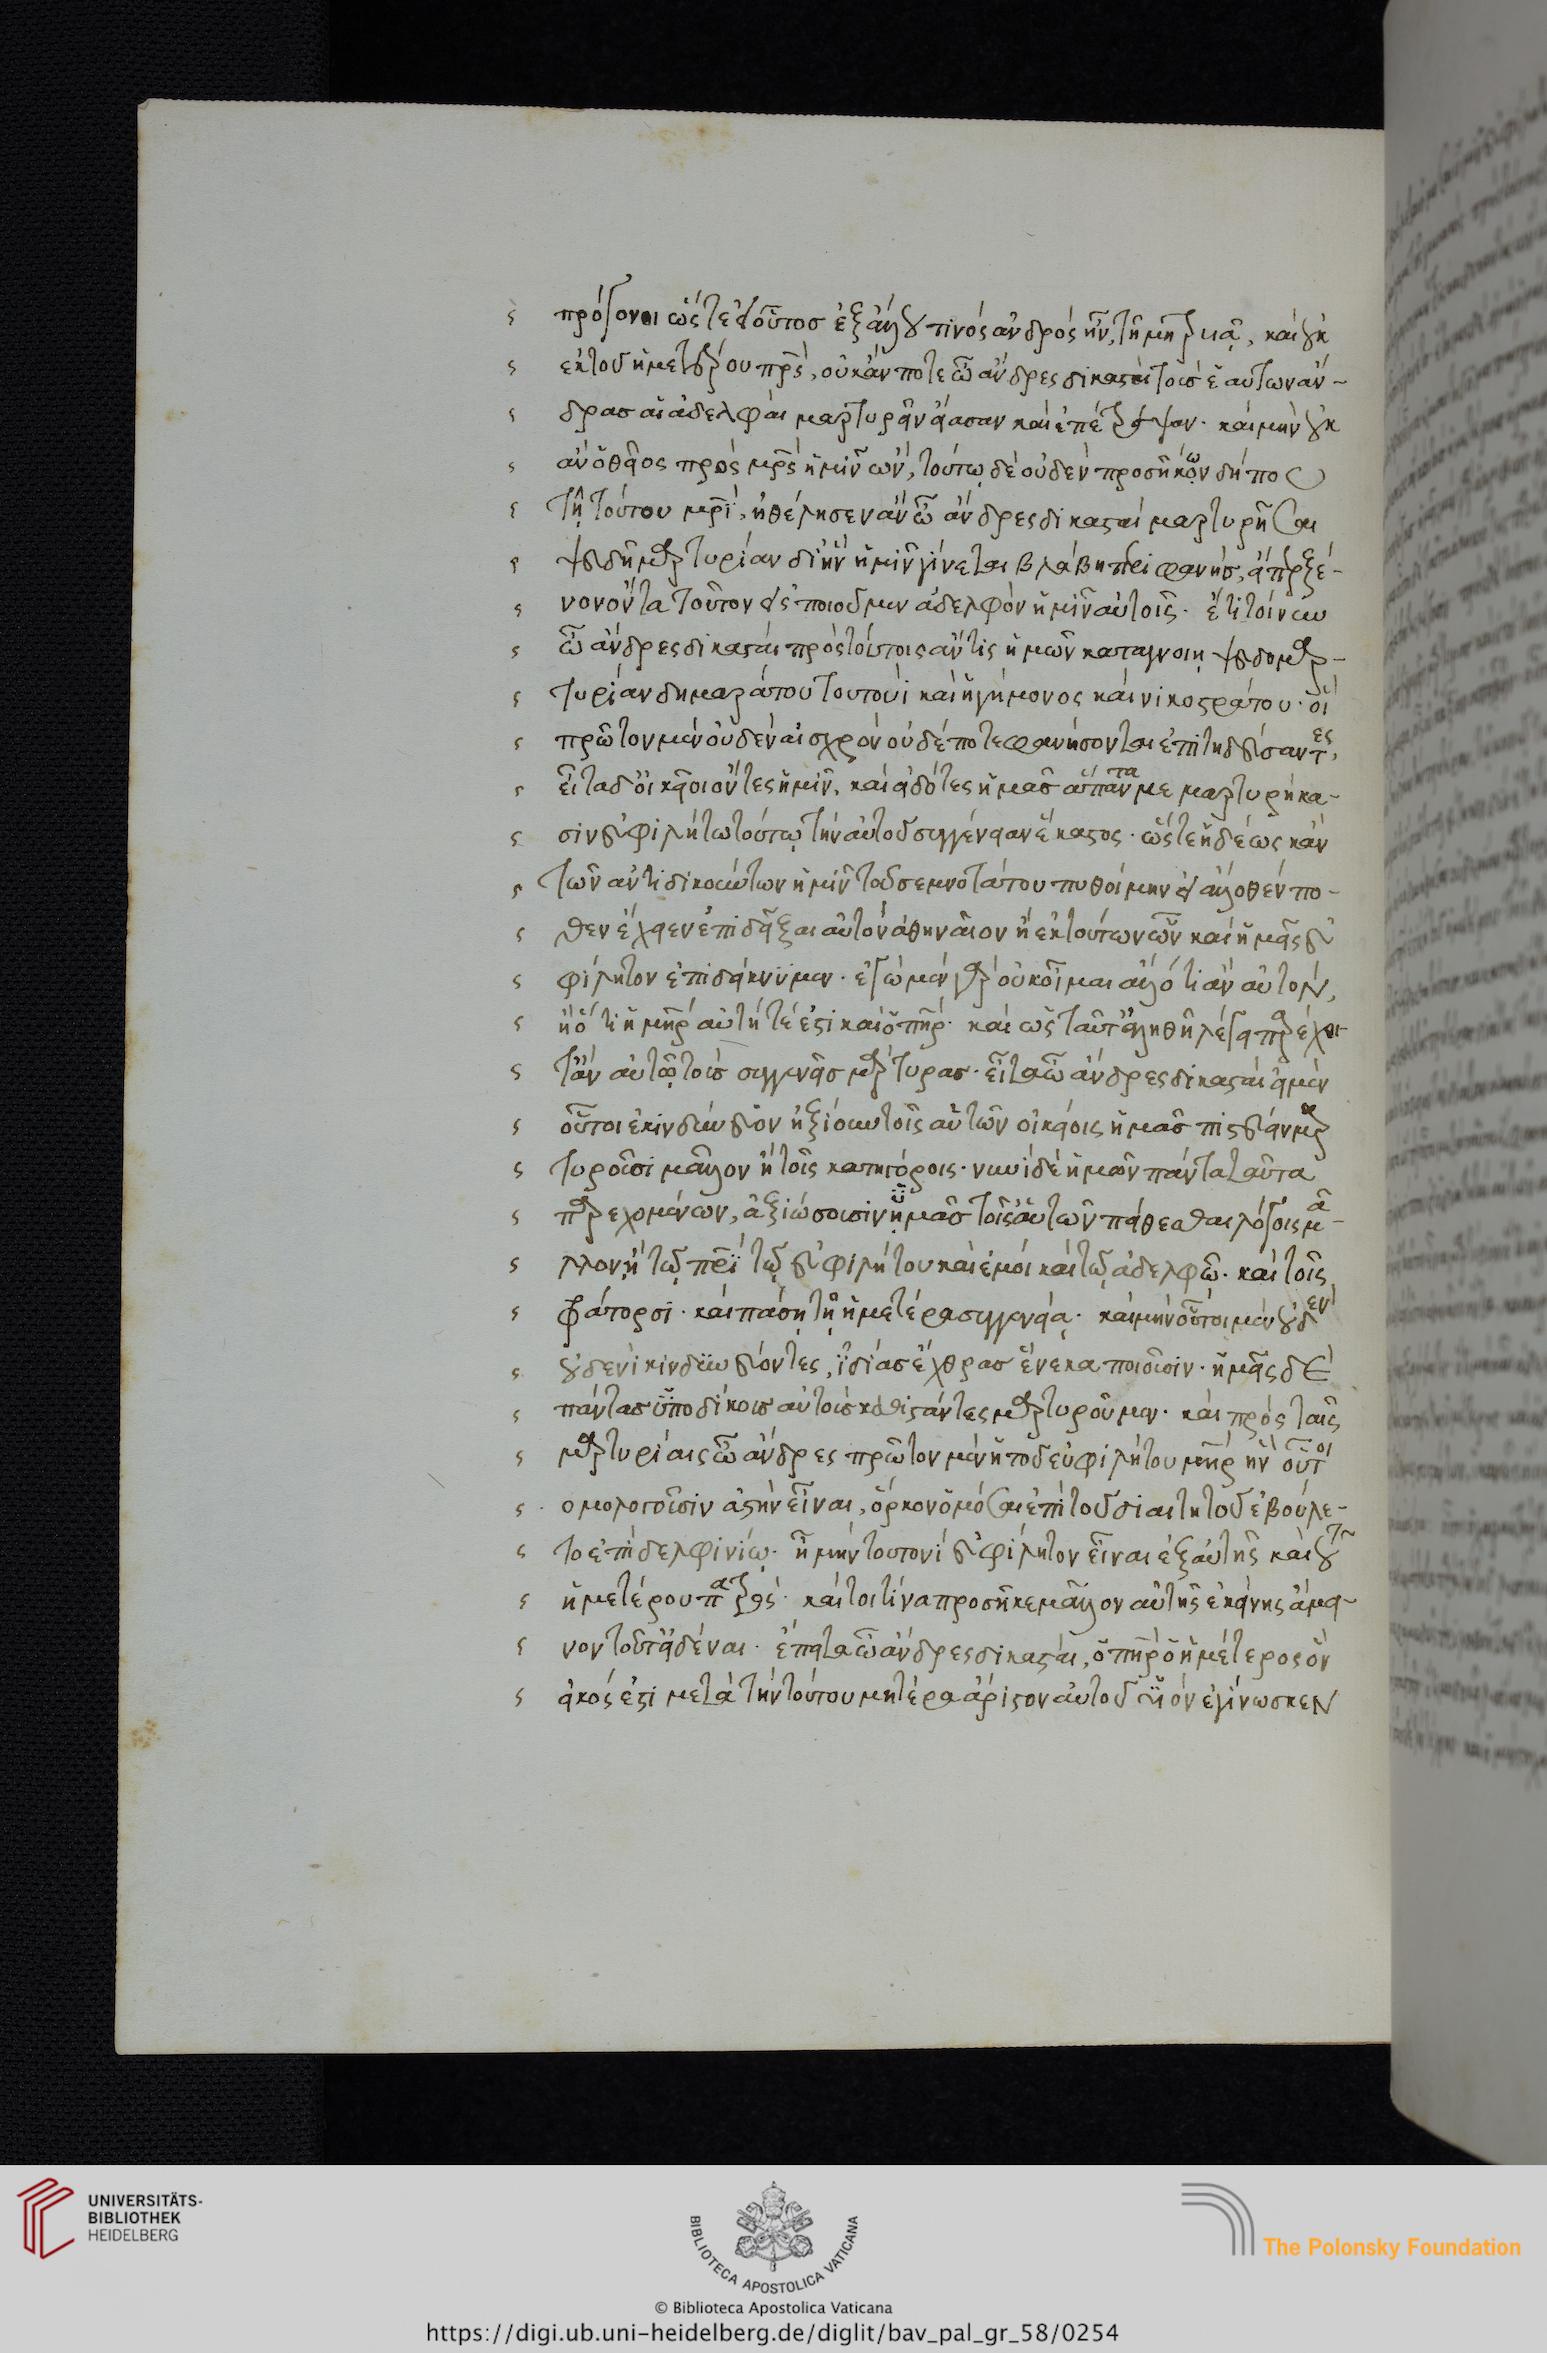 πρόγονοι ὥςτε εἰ οὗτοσ ἐξ ἄλλου τινός ἀνδρός ἦν, τῆ μητρυιᾷ, καὶ οὐκ
ἐκ τοῦ ἡμετέρου πρς̄, οὐκ ἄν ποτε ὦ ἄνδρες δικασταὶ τοὺσ ἑαυτων ἄν-
δρασ αἱ ἀδελφαὶ μαρτυρεῖν εἴασαν καὶ ἐπέτρεψαν· καὶ μὴν οὐκ
ἂν ὁ θεῖος πρὸς μρς̄ ἡμῖν ὤν, τούτῳ δὲ οὐδὲν προσῆκων δήπου
τῇ τούτου μρὶ, ἠθέλησεν ἄν ὦ ἄνδρες δικασταὶ μαρτυρῆσαι
ψευδῆ μαρτυρίαν δι' ἣν ἡμῖν γίνεται βλάβη περιφανήσ, εἴπερ ξέ-
νον ὄντα τοῦτον εἰσποιοῦμεν ἀδελφὸν ἡμῖν αὐτοῖς· ἔτι τοίνυν
ὦ ἄνδρες δικασταὶ πρὸς τούτοις ἄν τις ἡμῶν καταγνοιη ψευδομαρ-
τυρίαν δημαράτου τουτουὶ καὶ ἡγήμονος καὶ νικοστράτου· οἳ
πρῶτον μὲν οὐδὲν αἰσχρὸν οὐδέποτε φανήσονται ἐπιτηδεύσαντες,
εἶτα δ' οἰκεῖοι ὄντες ἡμῖν, καὶ εἰδότες ἡμᾶσ ἅπαντα με μαρτυρήκα-
σιν εὐφιλήτω τούτῳ τὴν αὑτοῦ συγγένειαν ἕκαστος· ὥςτε ἡδέως κἂν
τῶν ἀντιδικούντων ἡμῖν τοῦ σεμνοτάτου πυθοίμην εἰ ἄλλοθέν πο-
θεν ἔχειεν ἐπιδεῖξαι αὑτὸν ἀθηναῖον ἢ ἐκ τούτων ὧν καὶ ἡμᾶς εὐ
φίλητον ἐπιδείκνυμεν· ἐγὼ μὲν γὰρ οὐκ οἶμαι ἄλλό τι ἂν αὐτὸν,
ἢ ὅτι ἡ μηρ̄ αὐτή τέ ἐστι καὶ ὁ πηρ̄· καὶ ὡς ταῦτ' ἀληθῆ λέγει παρέχοι
τ' ἂν αὐτῷ τοὺσ συγγενεῖσ μάρτυρασ· εἶτα ὦ ἄνδρες δικασταὶ εἰ μὲν
οὗτοι ἐκινδύνευον ἠξίουν τοῖς αὑτῶν οἰκείοις ἡμᾶσ πιστεύειν μαρ
τυροῦσι μᾶλλον ἢ τοῖς κατηγόροις· νυνὶ δὲ ἡμῶν πάντα ταῦτα
παρεχομένων, ἀξιώσουσιν ὑμᾶσ τοῖς αὑτῶν πείθεσθαι λόγοις μᾶ-
λλον, ἢ τῷ πρὶ τῷ εὐφιλήτου καὶ ἐμοὶ καὶ τῷ ἀδελφῷ· καὶ τοῖς
φράτορσι· καὶ πάσῃ τῇ ἡμετέρα συγγενείᾳ· καὶ μὴν οὗτοι μὲν οὐδενὶ
οὐδενὶ κινδυνεύοντες, ἰδίασ ἔχθρασ ἕνεκα ποιοῦσιν· ἡμᾶς δὲ
πάντασ ὑποδίκουσ αὐτοὺσ καθιστάντες μαρτυροῦμεν· καὶ πρὸς ταῖς
μαρτυρίαις ὦ ἄνδρες πρῶτον μὲν ἡ τοῦ εὐφιλήτου μηρ̄ ἣν οὗτοι
ὁμολογοῦσιν ἀστὴν εἶναι, ὅρκον ὀμόσαι ἐπὶ τοῦ διαιτητοῦ ἐβούλε-
το ἐπὶ δελφινίῳ· ἦ μὴν τουτονὶ εὐφίλητον εἶναι ἐξ αὑτῆς καὶ τοῦ
ἡμετέρου πατρός· καίτοι τίνα προσῆκε μᾶλλον αὐτῆς ἐκείνης ἄμει-
νον τοῦτ' εἰδέναι· ἔπειτα ὦ ἄνδρες δικασταὶ, ὁ πηρ̄ ὁ ἡμέτερος ὃν
εἰκός ἐστι μετὰ τὴν τούτου μητέρα ἄριστον αὑτοῦ υἱὸν ἐγίνωσκεν
UNIVERSITÄTS-
BIBLIOTHEK
HEIDELBERG
BIBLIOTECA APOSTOLICA VATICANA
The Polonsky Foundation
© Biblioteca Apostolica Vaticana
https://digi.ub.uni-heidelberg.de/diglit/bav_pal_gr_58/0254